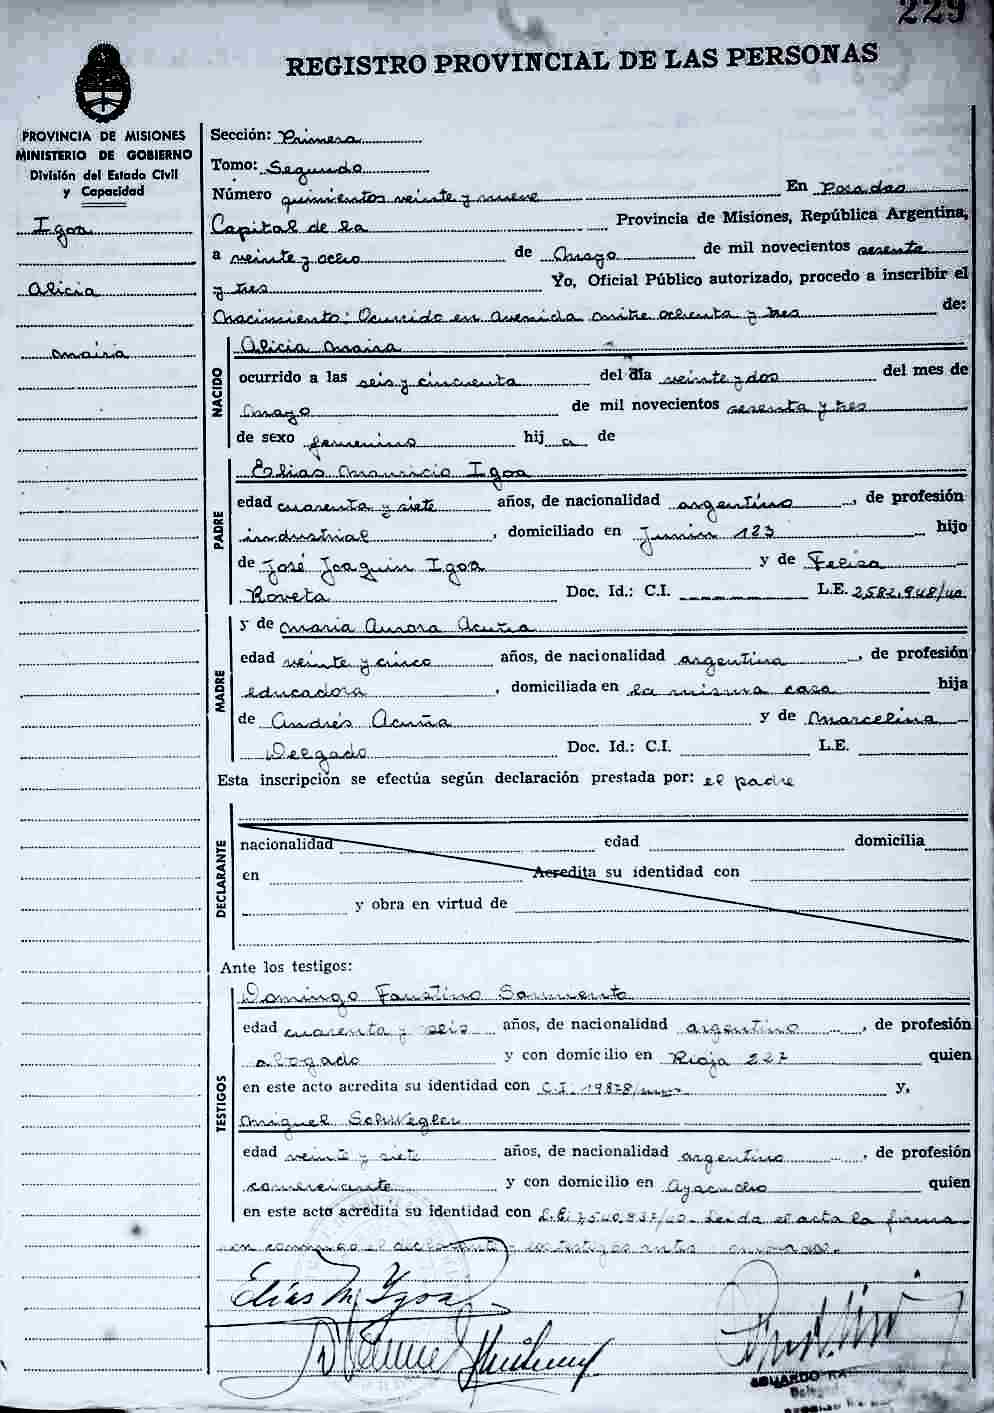 229
REGISTRO PROVINCIAL DE LAS PERSONAS
PROVINCIA DE MISIONES
MINISTERIO DE GOBIERNO
División del Estado Civil
y Capacidad
Igoa
Alicia
Maira
Sección: Primera
Tomo: Segundo
Número quinientos veinte y nueve En Posadas
Capital de la Provincia de Misiones, República Argentina,
a veinte y ocho de Mayo de mil novecientos sesenta
y tres Yo, Oficial Público autorizado, procedo a inscribir el
Nacimiento: Ocurrido en Avenida Mitre ochenta y tres de:
NACIDO
Alicia Maira
ocurrido a las seis y cincuenta del día veinte y dos del mes de
Mayo de mil novecientos sesenta y tres
de sexo femenino hij a de
PADRE
Elias Mauricio Igoa
edad cuarenta y siete años, de nacionalidad argentino, de profesión
industrial, domiciliado en Junin 123 hijo
de José Joaquin Igoa y de Felisa
Roveta Doc. Id.: C.I. L.E. 2.582.948/40
MADRE
y de Maria Aurora Acuña
edad veinte y cinco años, de nacionalidad argentina, de profesión
educadora, domiciliada en la misma casa hija
de Andrés Acuña y de Marcelina
Delgado Doc. Id.: C.I. L.E.
Esta inscripción se efectúa según declaración prestada por: el padre
DECLARANTE
nacionalidad edad domicilia
en Acredita su identidad con
y obra en virtud de
Ante los testigos:
TESTIGOS
Domingo Faustino Sarmiento
edad cuarenta y seis años, de nacionalidad argentino, de profesión
abogado y con domicilio en Rioja 227 quien
en este acto acredita su identidad con C.I. 19878/ y,
Miguel Schwegler
edad veinte y siete años, de nacionalidad argentino, de profesión
comerciante y con domicilio en Ayacucho quien
en este acto acredita su identidad con L.E. 7.540.837/40. Leida el acta la firma
conmigo el declarante y
Elías M. Igoa
EDUARDO